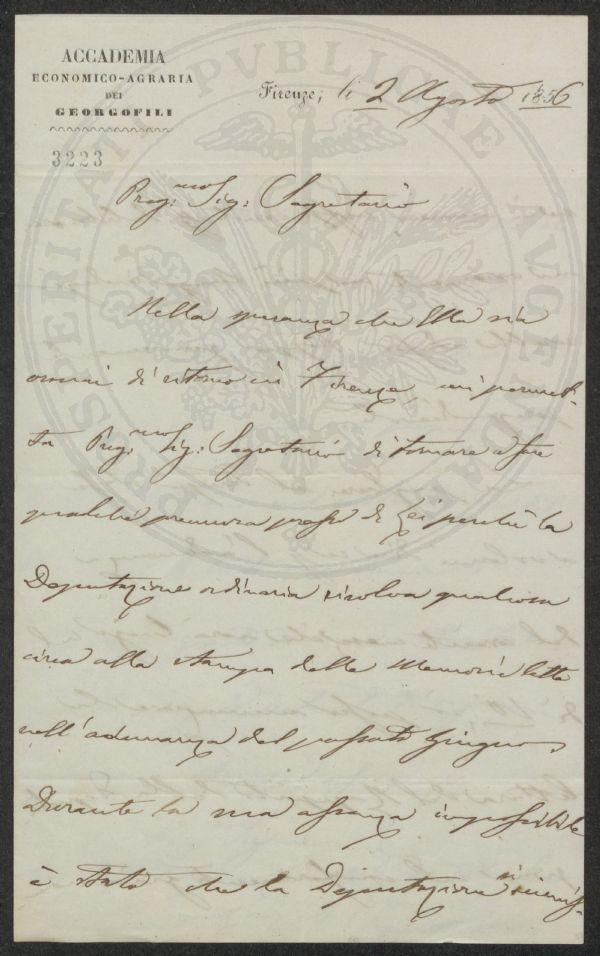 ACCADEMIA
ECONOMICO-AGRARIA
DEI
GEORGOFILI
3223
Firenze, li 2 Agosto 1856
Preg:mo Sig: Segretario
Nella speranza che Ella sia
ormai di ritorno in Firenze, mi permet-
ta Preg:mo Sig: Segretario di tornare a fare
qualche premura presso di Lei perchè la
Deputazione ordinaria risolva qualcosa
circa alla stampa delle Memorie lette
nell'adunanza del passato Giugno.
Durante la sua assenza impossibile
è stato che la Deputazione si riunis-
PROSPERITATI PVBLICAE AVGENDAE